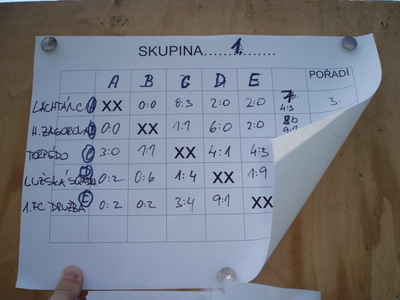 SKUPINA........1.........
A B C D E POŘADÍ
LACHTANI A XX 0:0 0:3 2:0 2:0 7b. 4:3 3.
H. ZAGOROVÁ B 0:0 XX 1:1 6:0 2:0 8b 9:1
TORPÉDO C 3:0 1:1 XX 4:1 4:3
LUŽSKÁ D 0:2 0:6 1:4 XX 1:9
1. FC DRUŽBA E 0:2 0:2 3:4 9:1 XX